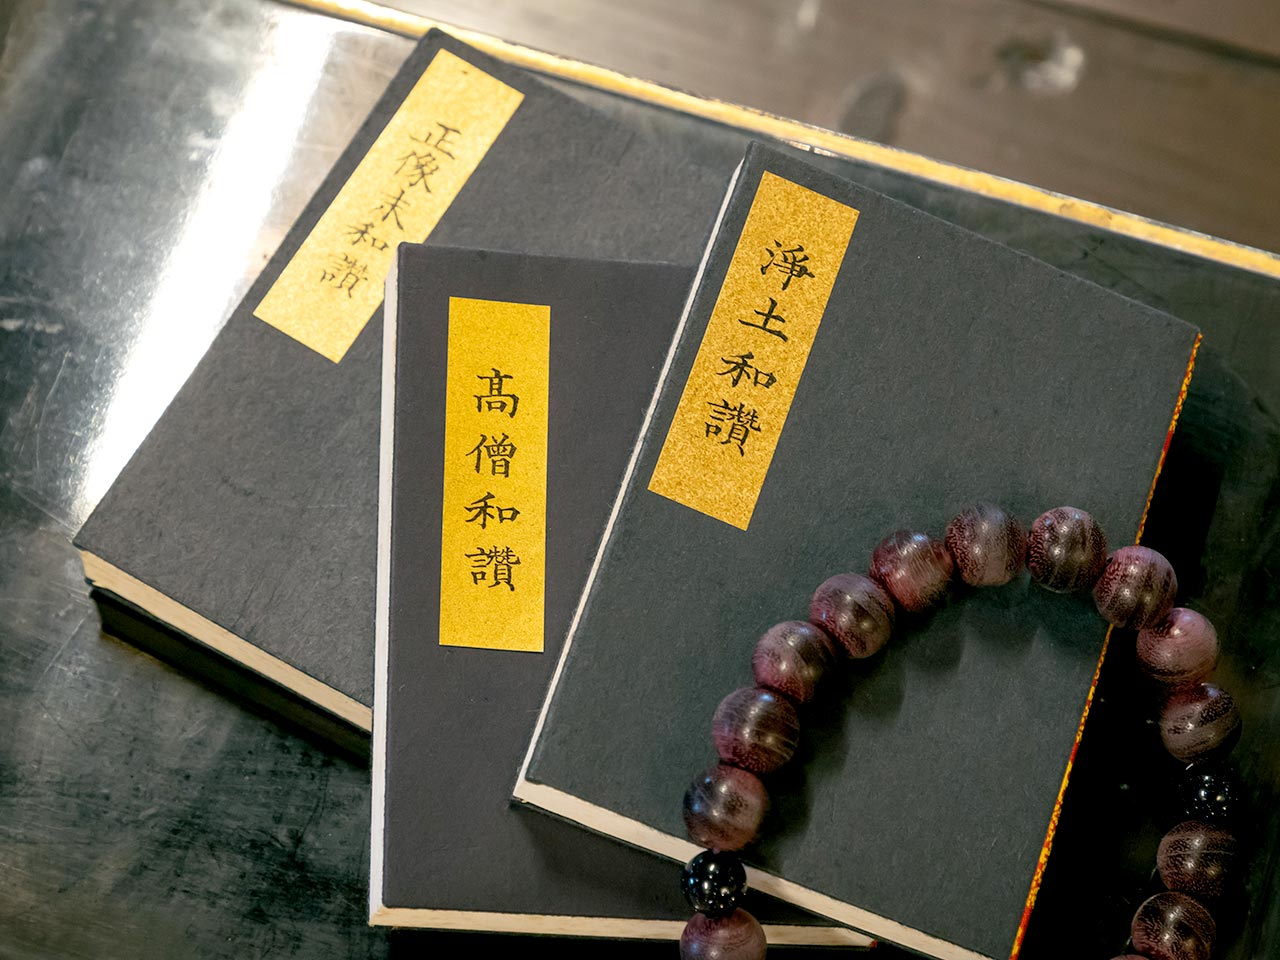 正像末和讃
髙僧和讃
淨土和讃